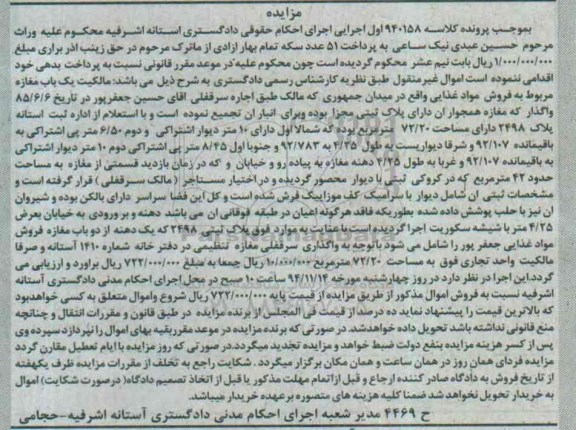 مزایده
بموجب پرونده کلاسه ۹۴۰۱۵۸ اول اجرایی اجرای احکام حقوقی دادگستری استانه اشرفیه محکوم علیه وراث
مرحوم حسین عبدی نیک ساعی به پرداخت ۵۱ عدد سکه تمام بهار ازادی از ماترک مرحوم در حق زینب اذر براری مبلغ
۱/۰۰۰/۰۰۰/۰۰۰ ریال بابت نیم عشر محکوم گردیده است چون محکوم علیه در موعد مقرر قانونی نسبت به پرداخت بدهی خود
اقدامی ننموده است اموال غیر منقول طبق نظریه کارشناس رسمی دادگستری به شرح ذیل می باشد: مالکیت یک باب مغازه
مربوط به فروش مواد غذایی واقع در میدان جمهوری که مالک طبق اجاره سرقفلی اقای حسین جعفرپور در تاریخ ۸۵/۶/۶
واگذار که مغازه همجوار ان دارای پلاک ثبتی مجزا بوده وبرای انبار ان تجمیع نموده است و با استعلام از اداره ثبت استانه
پلاک ۲۴۹۸ دارای مساحت ۷۲/۲۰ مترمربع بوده که شمالا اول دارای ۱۰ متر دیوار اشتراکی و دوم ۶/۵۰ متر پی اشتراکی به
باقیمانده ۹۲/۱۰۷ و شرقا دیواریست به طول ۴/۳۵ به ۹۲/۷۸۳ و جنوبا اول ۸/۴۵ متر پی اشتراکی دوم ۱۰ متر دیوار اشتراکی
به باقیمانده ۹۲/۱۰۷ و غربا به طول ۴/۲۵ دهنه مغازه به پیاده رو و خیابان و که در زمان بازدید قسمتی از مغازه به مساحت
حدود ۴۲ مترمربع که در کروکی ثبتی با دیوار محصور گردیده و در اختیار مستاجر (مالک سرقفلی) قرار گرفته است و
مشخصات ثبتی ان شامل دیوار با سرامیک کف موزاییک فرش شده است و کل این فضا سراسر دارای بالکن بوده و شیروان
ان نیز با حلب پوشش داده شده بطوریکه فاقد هرگونه اعیان در طبقه فوقانی ان می باشد دهنه و بر ورودی به خیابان بعرض
۴/۲۵ متر با شیشه سکوریت اجرا گردیده است با عنایت به موارد فوق پلاک ثبتی ۲۴۹۸ که یک دهنه از دو باب مغازه فروش
مواد غذایی جعفر پور را شامل می شود باتوجه به واگذاری سرقفلی مغازه تنظیمی در دفتر خانه شماره ۱۴۱۰ آستانه و صرفا
مالکیت واحد تجاری فوق به مساحت ۷۲/۲۰ مترمربع ۱۰/۰۰۰/۰۰۰ ریال جمعا به مبلغ ۷۲۲/۰۰۰/۰۰۰ ریال براورد و ارزیابی می
گردد.این اجرا در نظر دارد در روز چهارشنبه مورخه ۹۴/۱۱/۱۴ ساعت ۱۰ صبح در محل اجرای احکام مدنی دادگستری آستانه
اشرفیه نسبت به فروش اموال مذکور از طریق مزایده از قیمت پایه ۷۲۲/۰۰۰/۰۰۰ ریال شروع واموال متعلق به کسی خواهدبود
که بالاترین قیمت را پیشنهاد نماید ده درصد از قیمت فی المجلس از برنده مزایده در طبق قانون و مقررات انتقال و چنانچه
منع قانونی نداشته باشد تحویل داده خواهدشد. در صورتی که برنده مزایده در موعد مقرر بقیه بهای اموال را نپردازد سپرده وی
پس از کسر هزینه مزایده بنفع دولت ضبط خواهد و مزایده تجدید میگردد.در صورتی که روز مزایده با ایام تعطیل مقارن گردد
مزایده فردای همان روز در همان ساعت و همان مکان برگزار میگردد . شکایت راجع به تخلف از مقررات مزایده ظرف یکهفته
از تاریخ فروش به دادگاه صادر کننده ارجاع و قبل از اتمام مهلت مذکور یا قبل از اتخاذ تصمیم دادگاه( درصورت شکایت) اموال
به خریدار تحویل نخواهد شد ضمنا کلیه هزینه های متصوره بر عهده خریدار میباشد.
ح ۴۴۶۹ مدیر شعبه اجرای احکام مدنی دادگستری آستانه اشرفیه-حجامی